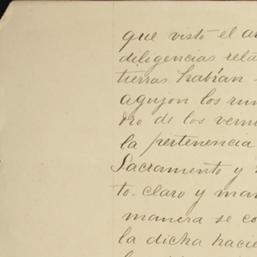 que visto el
diligencias
tierras habían
agujon los
dro de los
la pertenencia
Sacramento y
to. claro y
manera se
la dicha